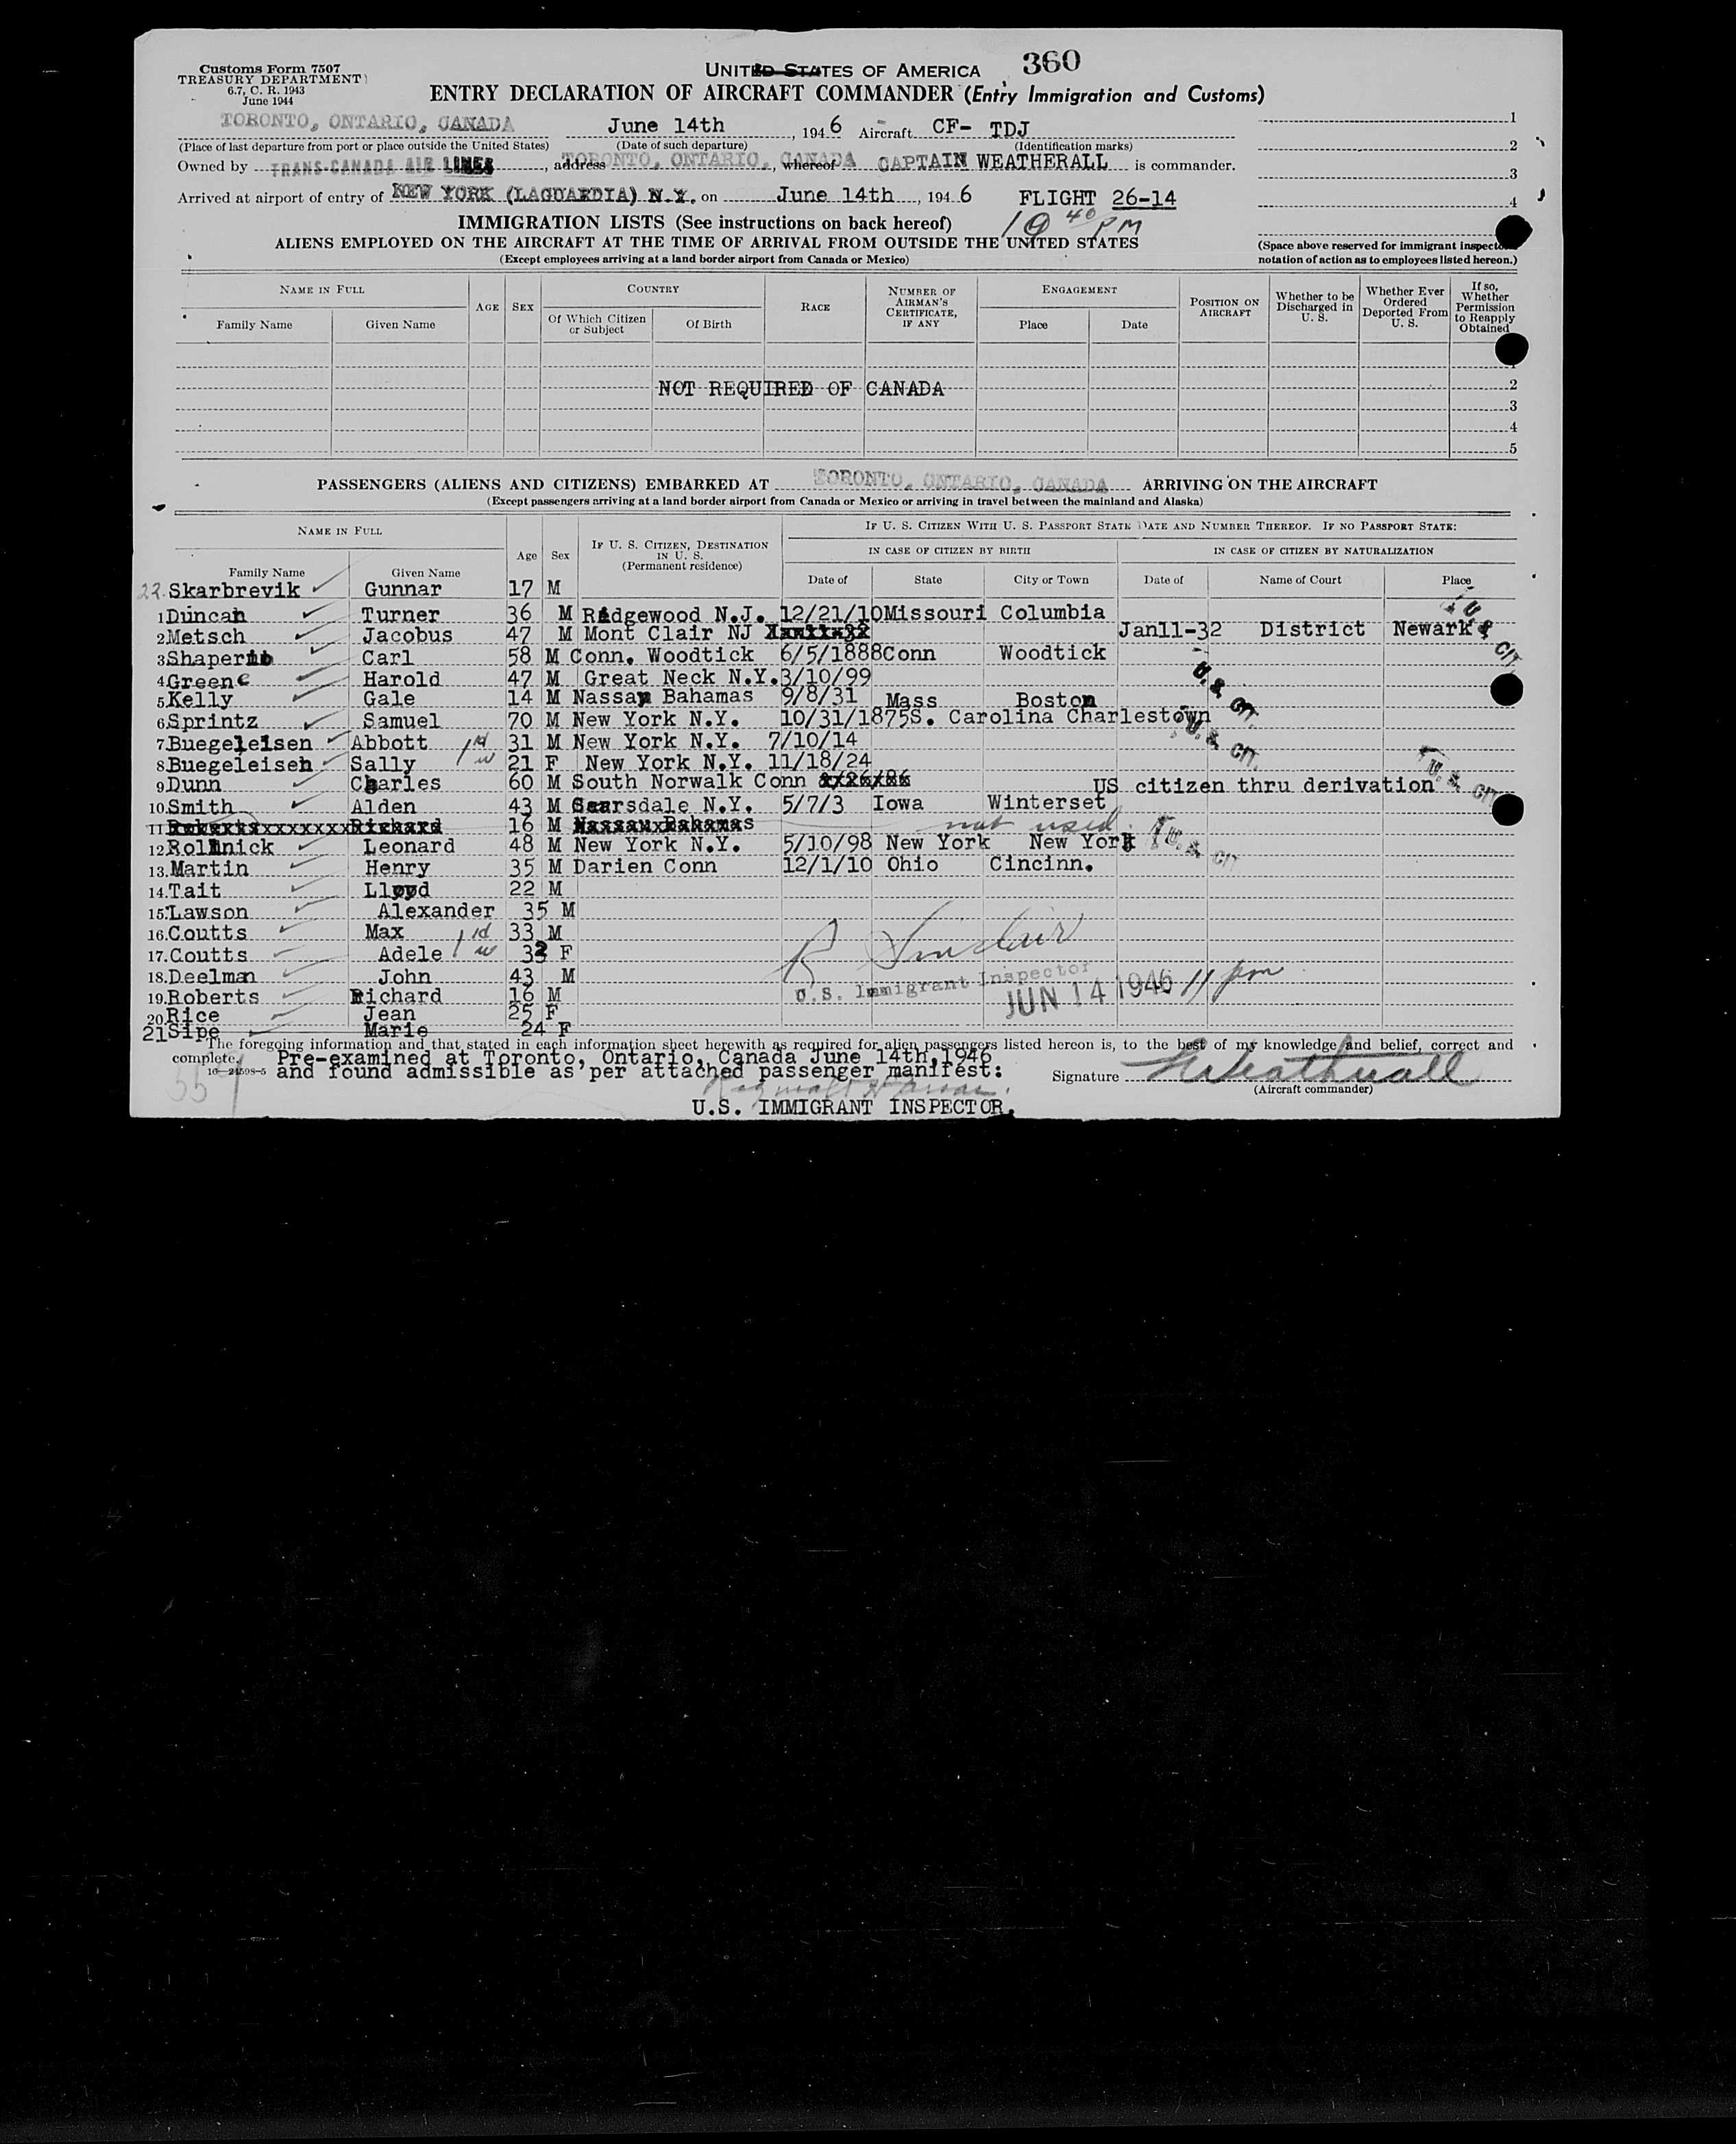 Customs Form 7507
TREASURY DEPARTMENT
6.7, C. R. 1943
June 1944
UNITED STATES OF AMERICA 360
ENTRY DECLARATION OF AIRCRAFT COMMANDER (Entry Immigration and Customs)
TORONTO, ONTARIO, CANADA June 14th, 1946 Aircraft CF- TDJ 1
(Place of last departure from port or place outside the United States) (Date of such departure) (Identification marks) 2
Owned by TRANS-CANADA AIR LINES, address TORONTO, ONTARIO, CANADA whereof CAPTAIN WEATHERALL is commander.
3
Arrived at airport of entry of NEW YORK (LAGUARDIA) N.Y. on June 14th, 1946 FLIGHT 26-14 4
IMMIGRATION LISTS (See instructions on back hereof) 40 PM
ALIENS EMPLOYED ON THE AIRCRAFT AT THE TIME OF ARRIVAL FROM OUTSIDE THE UNITED STATES
(Except employees arriving at a land border airport from Canada or Mexico)
(Space above reserved for immigrant inspector
notation of action as to employees listed hereon.)
NAME IN FULL AGE SEX COUNTRY RACE NUMBER OF AIRMAN'S CERTIFICATE, IF ANY ENGAGEMENT POSITION ON AIRCRAFT Whether to be Discharged in U. S. Whether Ever Ordered Deported From U. S. If so, Whether Permission to Reapply Obtained
Family Name Given Name Of Which Citizen or Subject Of Birth Place Date
NOT REQUIRED OF CANADA 2
3
4
5
PASSENGERS (ALIENS AND CITIZENS) EMBARKED AT TORONTO, ONTARIO, CANADA ARRIVING ON THE AIRCRAFT
(Except passengers arriving at a land border airport from Canada or Mexico or arriving in travel between the mainland and Alaska)
NAME IN FULL Age Sex IF U. S. CITIZEN, DESTINATION IN U. S. (Permanent residence) IF U. S. CITIZEN WITH U. S. PASSPORT STATE DATE AND NUMBER THEREOF. IF NO PASSPORT STATE:
IN CASE OF CITIZEN BY BIRTH IN CASE OF CITIZEN BY NATURALIZATION
Family Name Given Name Date of State City or Town Date of Name of Court Place
22. Skarbrevik Gunnar 17 M
1 Duncan Turner 36 M Ridgewood N.J. 12/21/10 Missouri Columbia U.S. CIT.
2 Metsch Jacobus 47 M Mont Clair NJ Jan11-32 District Newark
3 Shapero Carl 58 M Conn. Woodtick 6/5/1888 Conn Woodtick
4 Greene Harold 47 M Great Neck N.Y. 3/10/99 U.S. CIT.
5 Kelly Gale 14 M Nassau Bahamas 9/8/31 Mass Boston
6 Sprintz Samuel 70 M New York N.Y. 10/31/1875 S. Carolina Charlestown
7 Buegeleisen Abbott 31 M New York N.Y. 7/10/14 U.S. CIT.
8 Buegeleisen Sally 21 F New York N.Y. 11/18/24
9 Dunn Charles 60 M South Norwalk Conn 8/26/86 US citizen thru derivation U.S. CIT
10. Smith Alden 43 M Scarsdale N.Y. 5/7/3 Iowa Winterset
11 Roberts Richard 16 M Nassau Bahamas not used
12 Rollnick Leonard 48 M New York N.Y. 5/10/98 New York New York U.S. CIT
13. Martin Henry 35 M Darien Conn 12/1/10 Ohio Cincinn.
14. Tait Lloyd 22 M
15. Lawson Alexander 35 M
16. Coutts Max 33 M
17. Coutts Adele 32 F
18. Deelman John 43 M
19. Roberts Richard 16 M
20. Rice Jean 25 F
21 Sipe Marie 24 F
R Sinclair
U.S. Immigrant Inspector
JUN 14 1946 11 pm
The foregoing information and that stated in each information sheet herewith as required for alien passengers listed hereon is, to the best of my knowledge and belief, correct and
complete. Pre-examined at Toronto, Ontario, Canada June 14th, 1946
16—24598-5 and found admissible as per attached passenger manifest:
Signature
(Aircraft commander)
U.S. IMMIGRANT INSPECTOR.